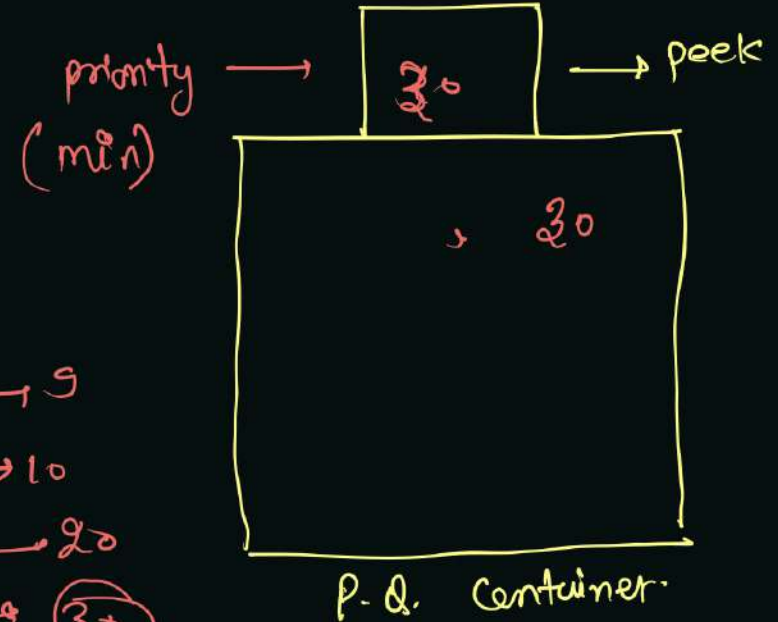 priority → 30 → peek
(min)
, 30
→ 9
→ 10
→ 20
30
P.Q. Container.